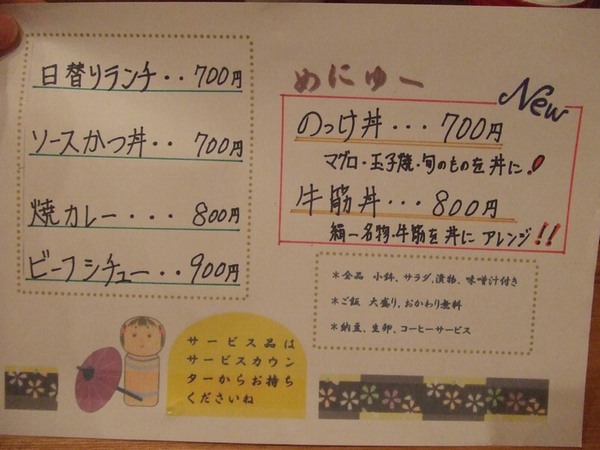 日替りランチ・・700円
ソースかつ丼・・700円
焼カレー・・・800円
ビーフシチュー・・900円
めにゅー
New
のっけ丼・・・700円
マグロ・玉子焼・旬のものを丼に!
牛筋丼・・・800円
絹一名物・牛筋を丼にアレンジ!!
*全品 小鉢、サラダ、漬物、味噌汁付き
*ご飯 大盛り、おかわり無料
*納豆、生卵、コーヒーサービス
サービス品は
サービスカウン
ターからお持ち
くださいね